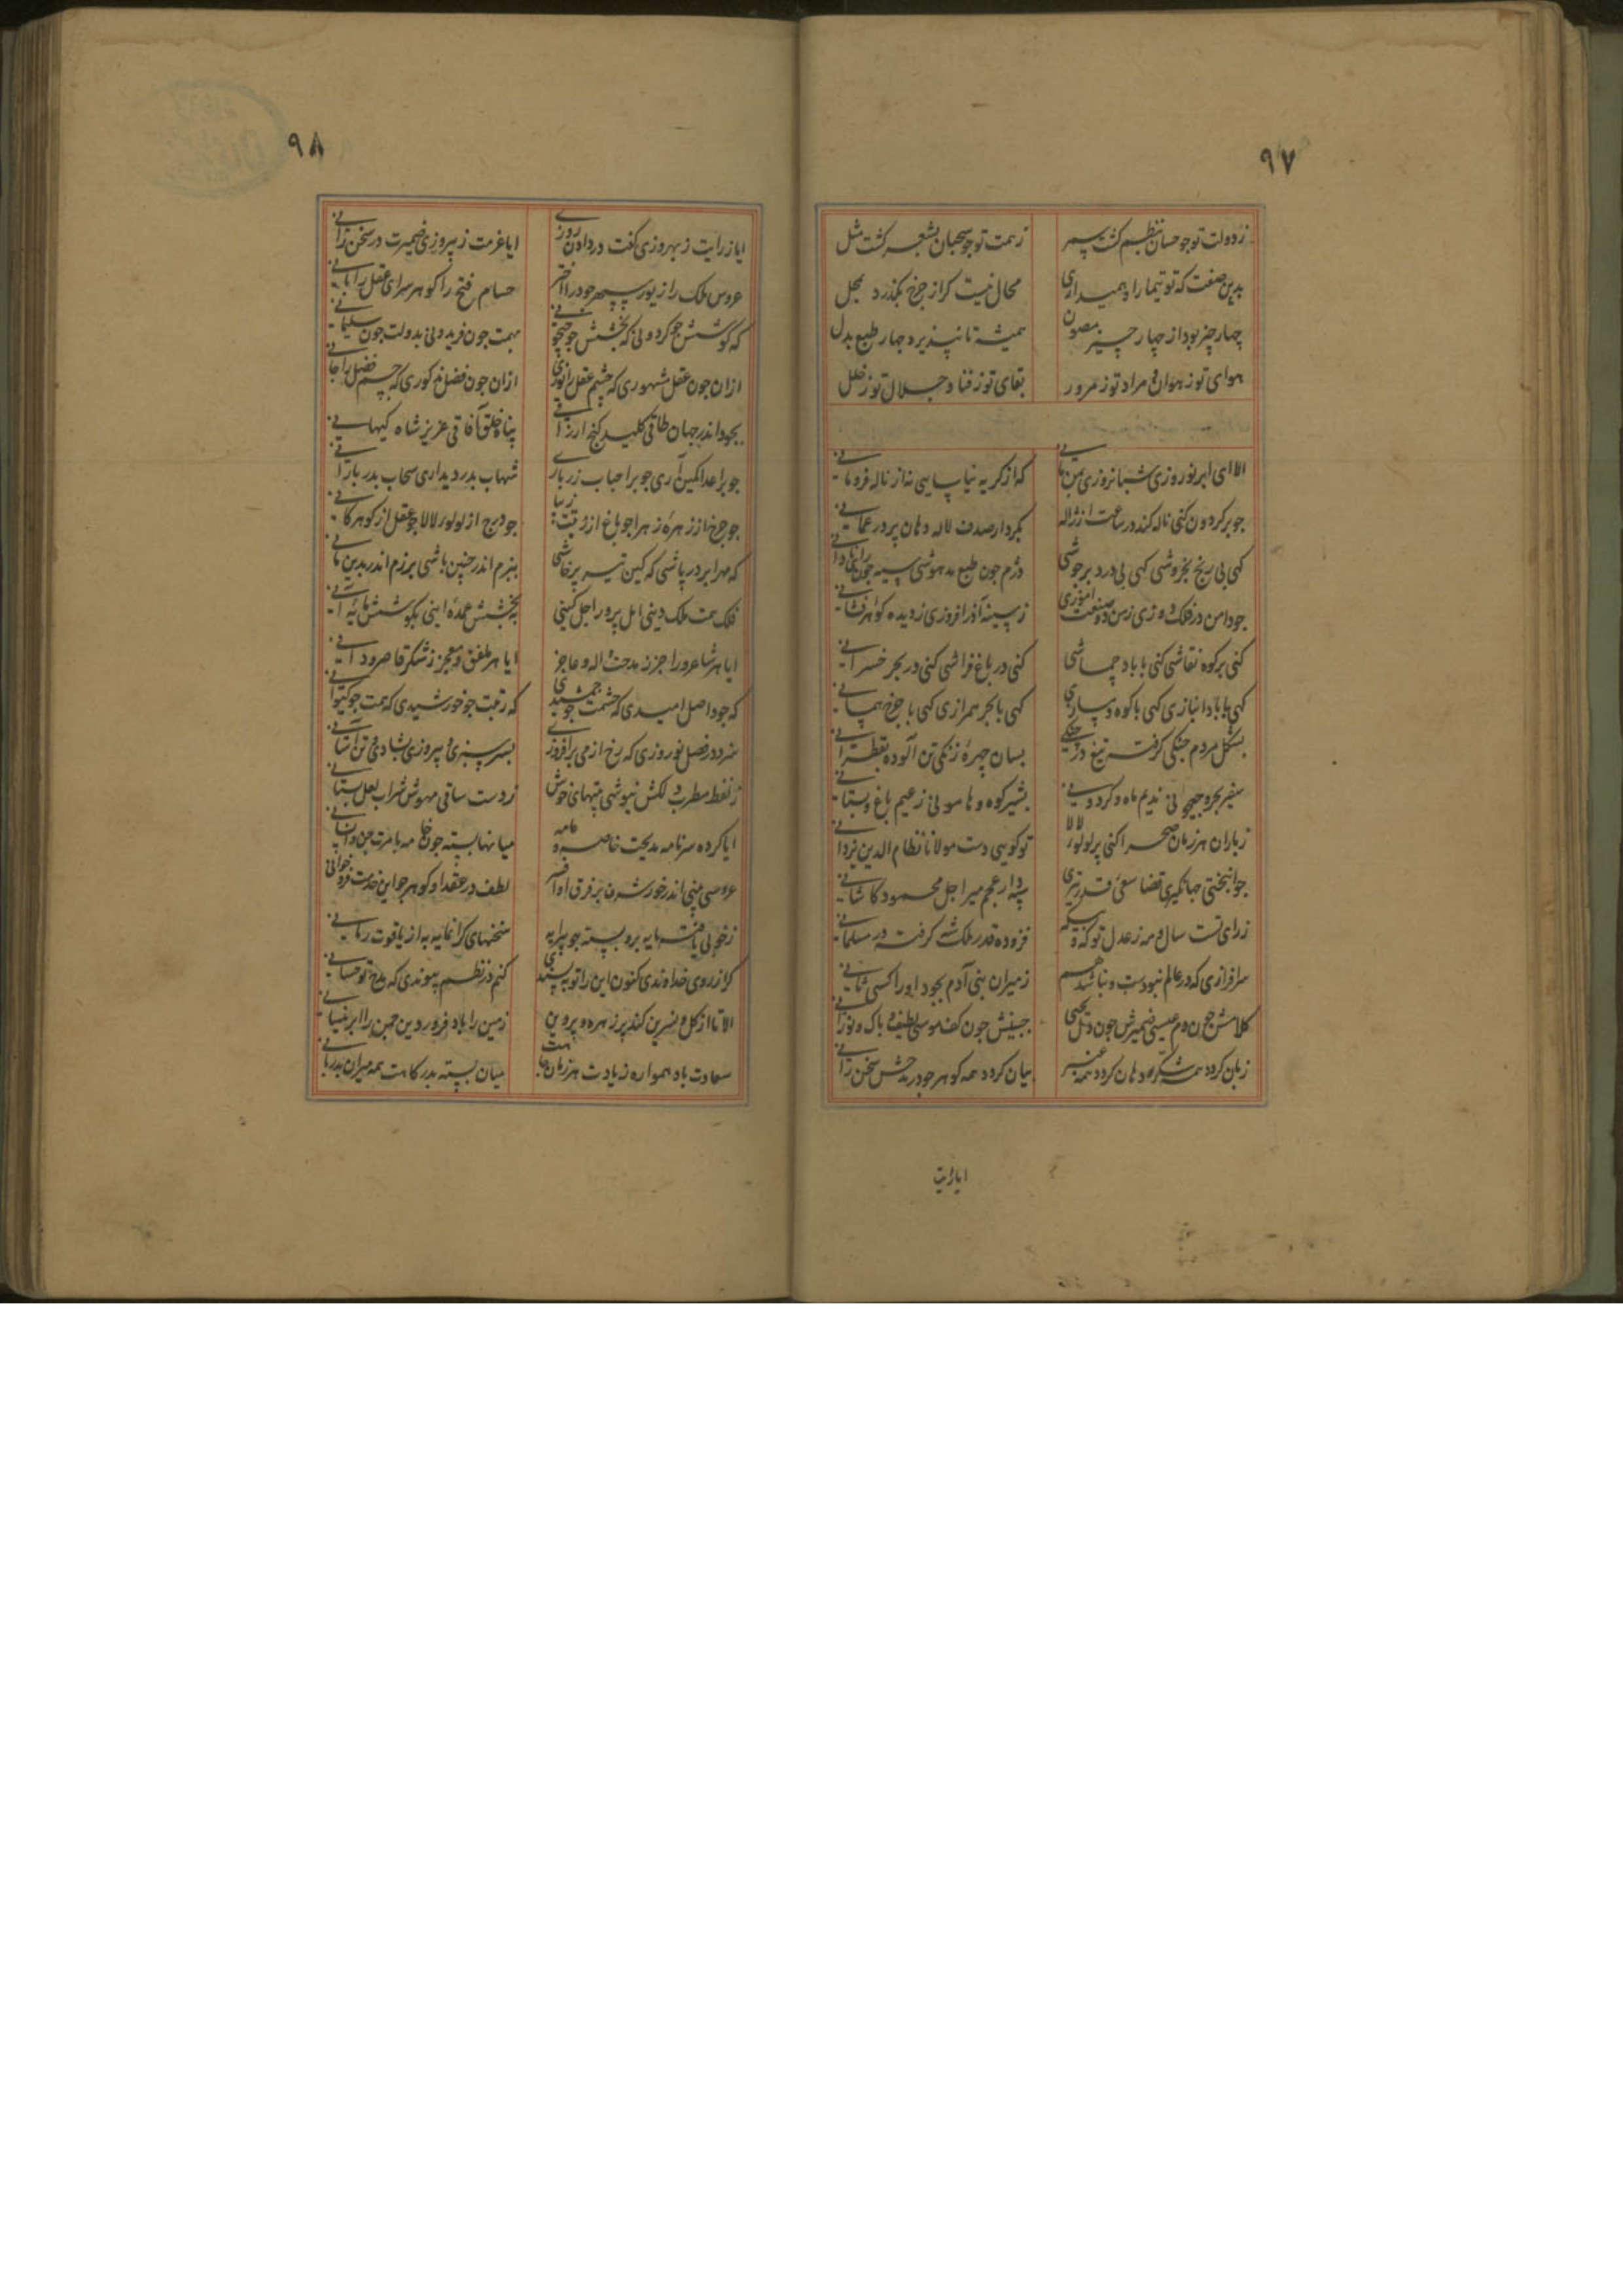 ٩٧
ز دولت تو چو حسان بنظم گشت سمر
ز همت تو چو سحبان بشعر گشت مثل
بدین صفت که تو تیمار ا همیداری
محال نیست که از چرخ بگذرد بمحل
چهار چیز بود از چهار چیز مصون
همیشه تا نپذیرد چهار طبع بدل
هوای تو ز هوان و مراد تو ز مرور
بقای تو ز فنا و جلال تو ز خلل
الا ای ابر نوروزی شبانروزی بمن مانی
که از گریه نیاسایی نه از ناله فرو مانی
چو بر گردون کنی ناله کند در ساعت از ژاله
بکردار صدف لاله دهان پر در عمانی
گهی بی رنج بخروشی گهی بی درد برجوشی
دژم چون طبع مدهوشی سیه چون رای نادانی
چو دامن در فلک دوزی ز من دو صنعت آموزی
ز سینه آذر افروزی ز دیده گوهر افشانی
کنی بر کوه نقاشی کنی با باد جماشی
کنی در باغ فراشی کنی در بحر خسرانی
گهی با باد انبازی گهی با کوه دمسازی
گهی با بحر همرازی گهی با چرخ همسانی
بشکل مردم جنگی گرفته تیغ در چنگی
بسان چهره زنگی تن آلوده بقطرانی
سفیر بحر و جیحونی ندیم ماه و گردونی
بشیر کوه و هامونی زعیم باغ و بستانی
ز باران هر زمان صحرا کنی پر لولوء لالا
تو گویی دست مولانا نظام الدین یزدانی
جوانبختی جهانگیری قضا سعی قدر تیری
سپهدار عجم میر اجل محمود کاشانی
ز رای تست سال و مه ز عدل تو که و بیگه
فزوده قدر ملک شه گرفته در مسلمانی
سرافرازی که در عالم نبودست و نباشد هم
ز میران بنی آدم بجود او را کسی ثانی
کلامش چون دم عیسی ضمیرش چون دل یحیی
جبینش چون کف موسی لطیف و پاک و نورانی
زبان گردد همه شکر دهان گردد همه عنبر
بیان گردد همه گوهر چو در مدحش سخن رانی
ایا رایت
٩٨
ایا ز رایت ز بهروزی کفت در دادن روزی
ایا عزمت ز پیروزی ضمیرت در سخن رانی
عروس ملک را زیور سپهر جود را اختر
حسام فتح را گوهر سرای عقل را بانی
که کوشش چو گردونی که بخشش چو جیحونی
بهمت چون فریدونی بدولت چون سلیمانی
از آن چون عقل مشهوری که چشم عقل را نوری
از آن چون فضل مذکوری که جسم فضل را جانی
بجود اندر جهان طاقی کلید گنج ارزاقی
پناه خلق آفاقی عزیز شاه کیهانی
چو بر اعدا کمین آری چو بر احباب زر باری
شهاب بدر دیداری سحاب بدر بارانی
چو چرخ از زهره زهرا چو باغ از زینت زیبا
چو درج از لولو لالا چو عقل از گوهر کانی
که مهر ابر در پاشی که کین تیر پرخاشی
ببزم اندر چنین باشی برزم اندر بدین مانی
فلک همت ملک دینی امل پرور اجل کینی
ببخشش عمده اینی بکوشش مایه آنی
ایا هر شاعر و راجز ز مدحت واله و عاجز
ایا هر مفلق و معجز ز شکرت قاصر و دانی
که جود اصل امیدی که حشمت چو جمشیدی
که رفعت چو خورشیدی که همت چو کیوانی
سزد در فصل نوروزی که رخ از می برافروزی
بسرسبزی و پیروزی بشادی و تن آسانی
ز لفظ مطرب دلکش نیوشی بیتهای خوش
ز دست ساقی مهوش شراب لعل بستانی
ایا کرده سر نامه مدیحت خاصه و عامه
میانها بسته چون خامه بامرت جن و انسانی
عروسی بینی اندر خور شرف بر فرق او افسر
لطف در عقد او گوهر چو این خدمت فرو خوانی
ز خوبی یافته مایه برو بسته چو پیرایه
سخنهای گرانمایه به از یاقوت رمانی
گر از روی خداوندی کنون این را تو بپسندی
کنم در نظم پیوندی که مدح تو حسانی
الا تا از گل و نسرین کند پر زهره و پروین
زمین را باد فروردین چمن را ابر نیسانی
سعادت باد همواره زیادت هر زمان جاهت
میان بسته بدرگاهت همه میران بدربانی